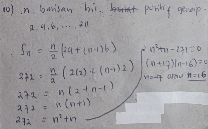 10) n barisan bil. positif genap.
2.4.6. ..... 2n
Sn = n/2 (2a + (n-1)b)
272 = n/2 (2(2) + (n-1)2)
272 = n (2 + n-1)
272 = n (n+1)
272 = n² + n
n² + n - 272 = 0
(n+17)(n-16) = 0
n = -17 atau n = 16